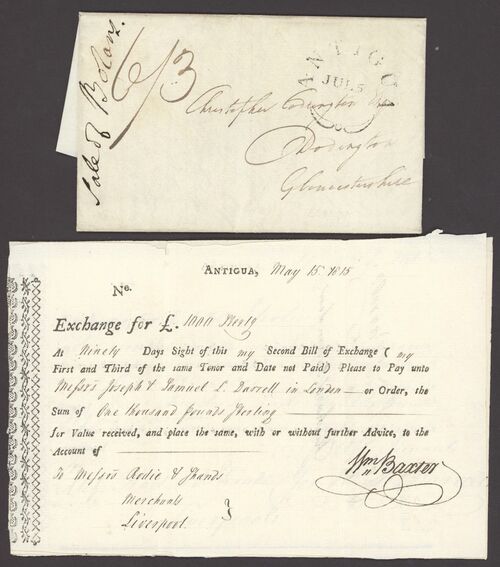 Sale of Bolans
6/3
ANTIGUA
JUL 5
Christopher Codrington Esq
Dodington
Gloucestershire
ANTIGUA, May 15 1815
No.
Exchange for £. 1000 Sterlg
At Ninety Days Sight of this my Second Bill of Exchange ( my
First and Third of the same Tenor and Date not Paid,) Please to Pay unto
Messrs Joseph & Samuel L. Darrell in London — or Order, the
Sum of One thousand pounds Sterling
for Value received, and place the same, with or without further Advice, to the
Account of
To Messrs Rodie & Shands
Merchants
Liverpool.
Wm Baxter